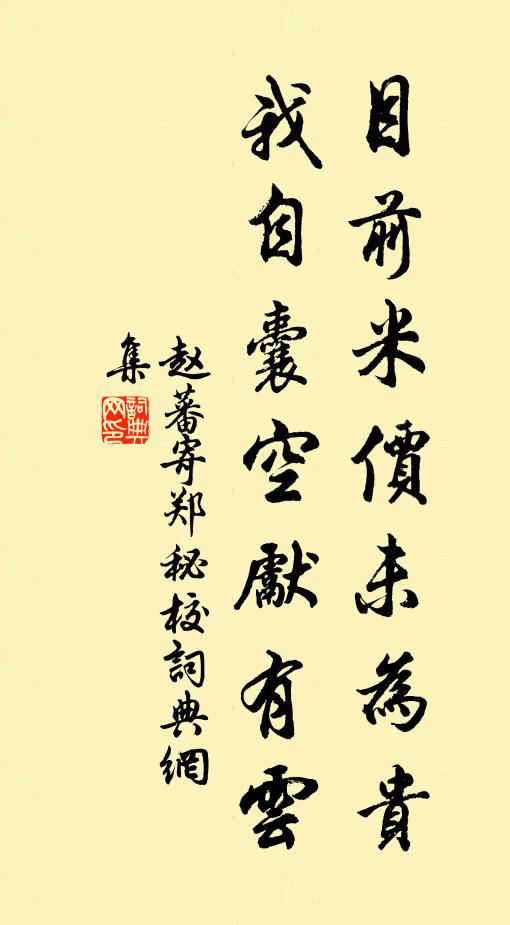 目前米價未為貴
我自囊空獻有雲
赵蕃寄郑秘校詞典網
集
詞典網印